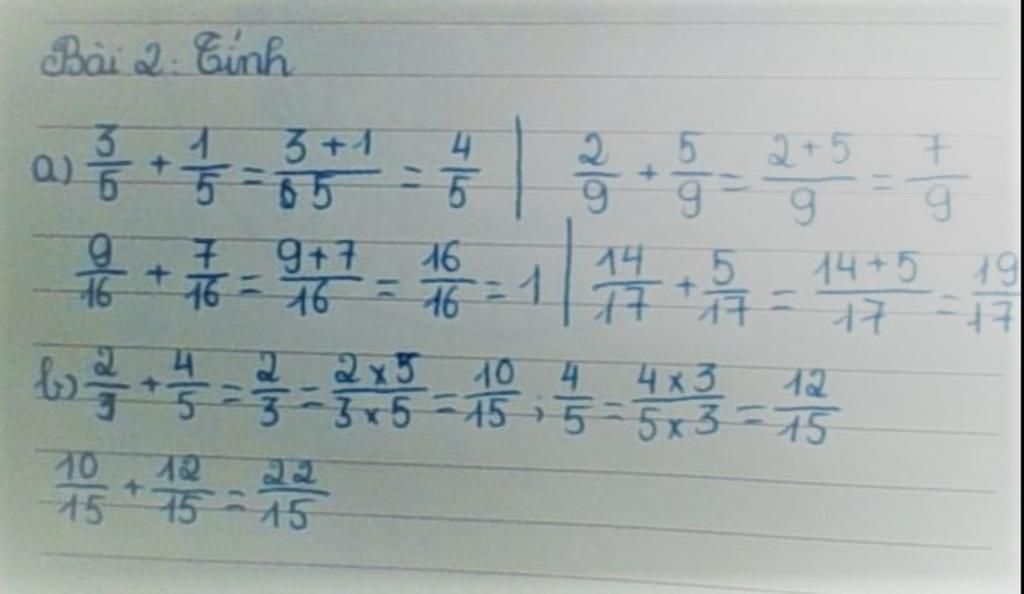 Bài 2: Tính
a) 3/5 + 1/5 = 3+1/5 = 4/5 | 2/9 + 5/9 = 2+5/9 = 7/9
9/16 + 7/16 = 9+7/16 = 16/16 = 1 | 14/17 + 5/17 = 14+5/17 = 19/17
b) 2/3 + 4/5 = 2/3 = 2x5/3x5 = 10/15 ; 4/5 = 4x3/5x3 = 12/15
10/15 + 12/15 = 22/15